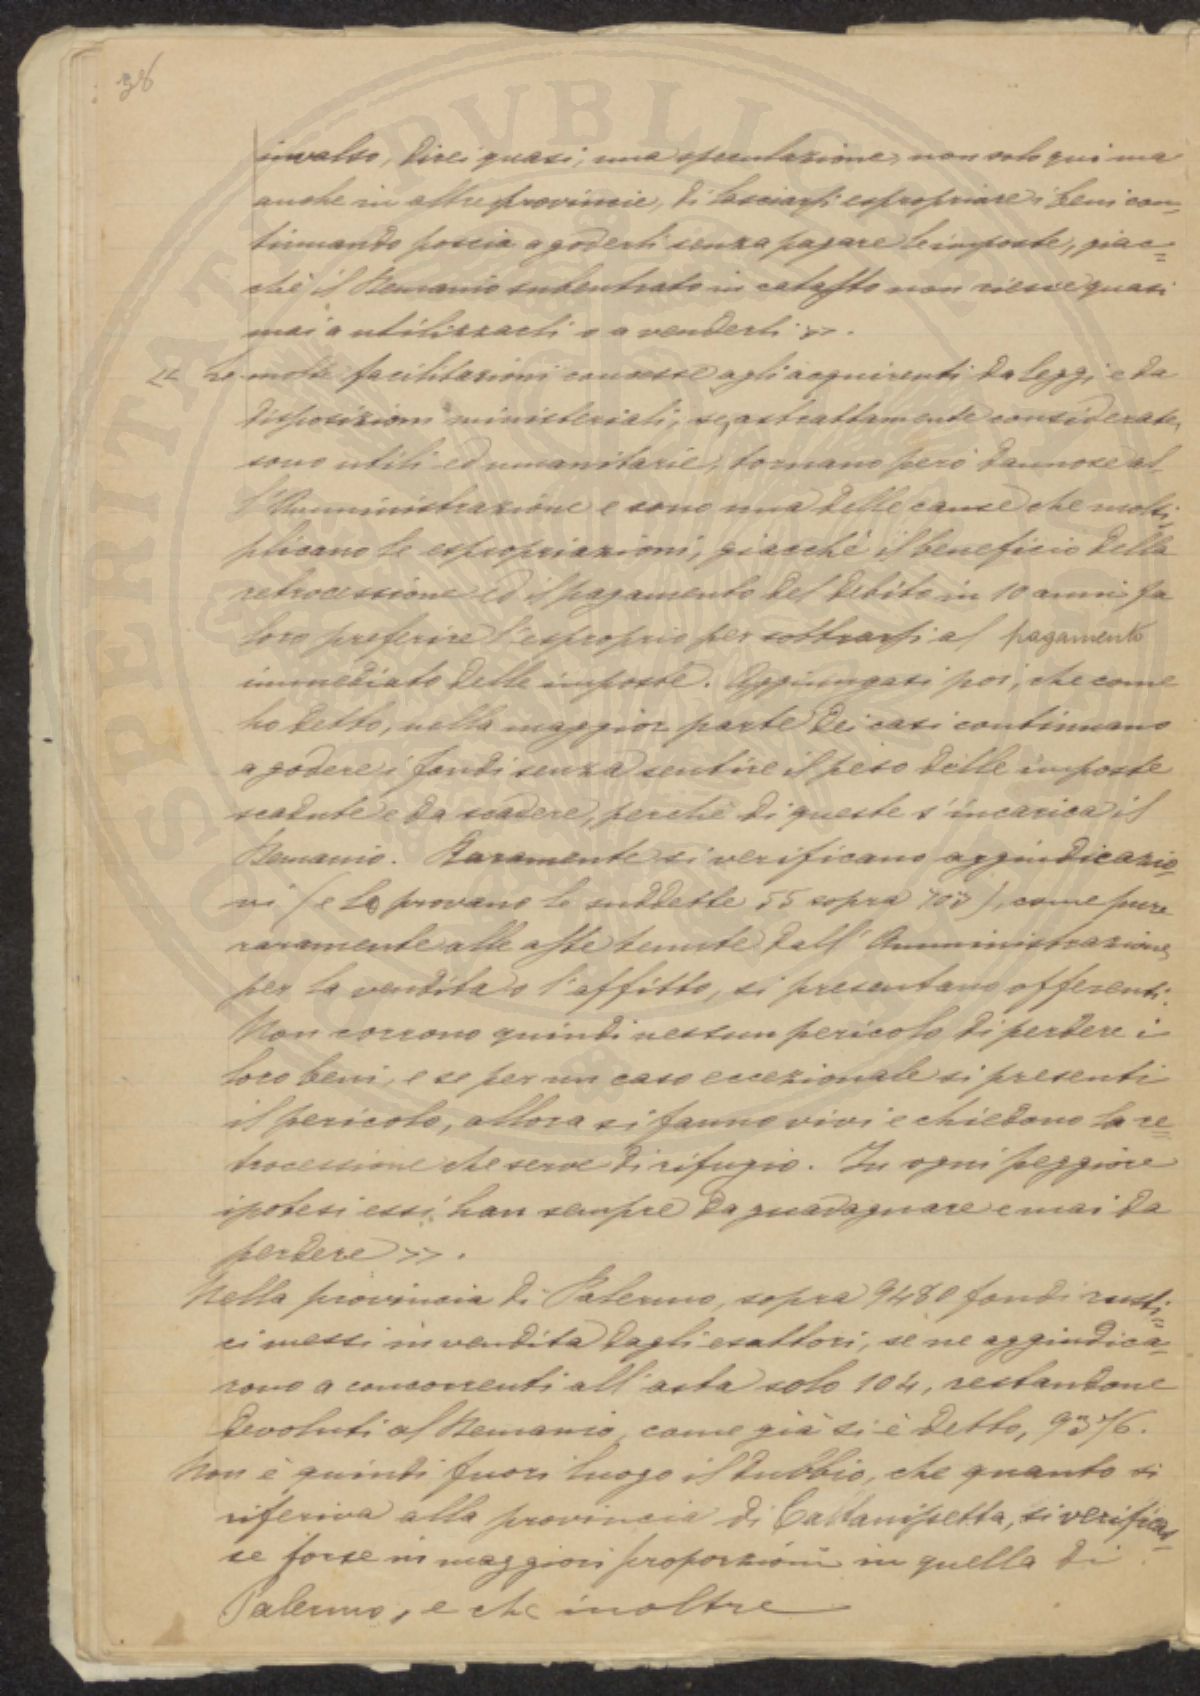 38
invalso, direi quasi, una speculazione, non solo qui ma
anche in altre provincie, di lasciarsi espropriare i beni con-
tinuando poscia a goderli senza pagare le imposte, giac=
chè il Demanio subentrato in catasto non riesce quasi
mai a utilizzarli o a venderli ».
« Le molte facilitazioni concesse agli acquirenti da leggi e da
disposizioni ministeriali, se, astrattamente considerate,
sono utili ed umanitarie, tornano però dannose al
l'Amministrazione e sono una delle cause che molti=
plicano le espropriazioni, giacchè il beneficio della
retrocessione ed il pagamento del debito in 10 anni fa
loro preferire l'esproprio per sottrarsi al pagamento
immediato delle imposte. Aggiungasi poi, che come
ho detto, nella maggior parte dei casi continuano
a godere i fondi senza sentire il peso delle imposte
scadute e da scadere, perchè di queste s'incarica il
Demanio. Raramente si verificano aggiudicazio-
ni (e lo provano le suddette 55 sopra 703), come pure
raramente alle aste tenute dall'Amministrazione
per la vendita o l'affitto, si presentano offerenti.
Non corrono quindi nessun pericolo di perdere i
loro beni, e se per un caso eccezionale si presenti
il pericolo, allora si fanno vivi e chiedono la re=
trocessione che serve di rifugio. In ogni peggiore
ipotesi essi han sempre da guadagnare e mai da
perdere ».
Nella provincia di Palermo, sopra 9480 fondi rusti=
ci messi in vendita dagli esattori, se ne aggiudica-
rono a concorrenti all'asta solo 104, restandone
devoluti al Demanio, come già si è detto, 9376.
Non è quindi fuori luogo il dubbio, che quanto si
riferiva alla provincia di Caltanissetta, si verificas=
se forse in maggiori proporzioni in quella di
Palermo, e che inoltre
SOSPERITATI PVBLICAE